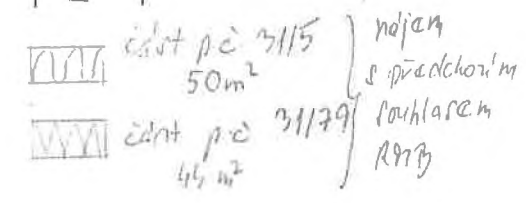 část pč 3115
50m²
část pč 31/79
45 m²
nájem
s předchozím
souhlasem
RMB